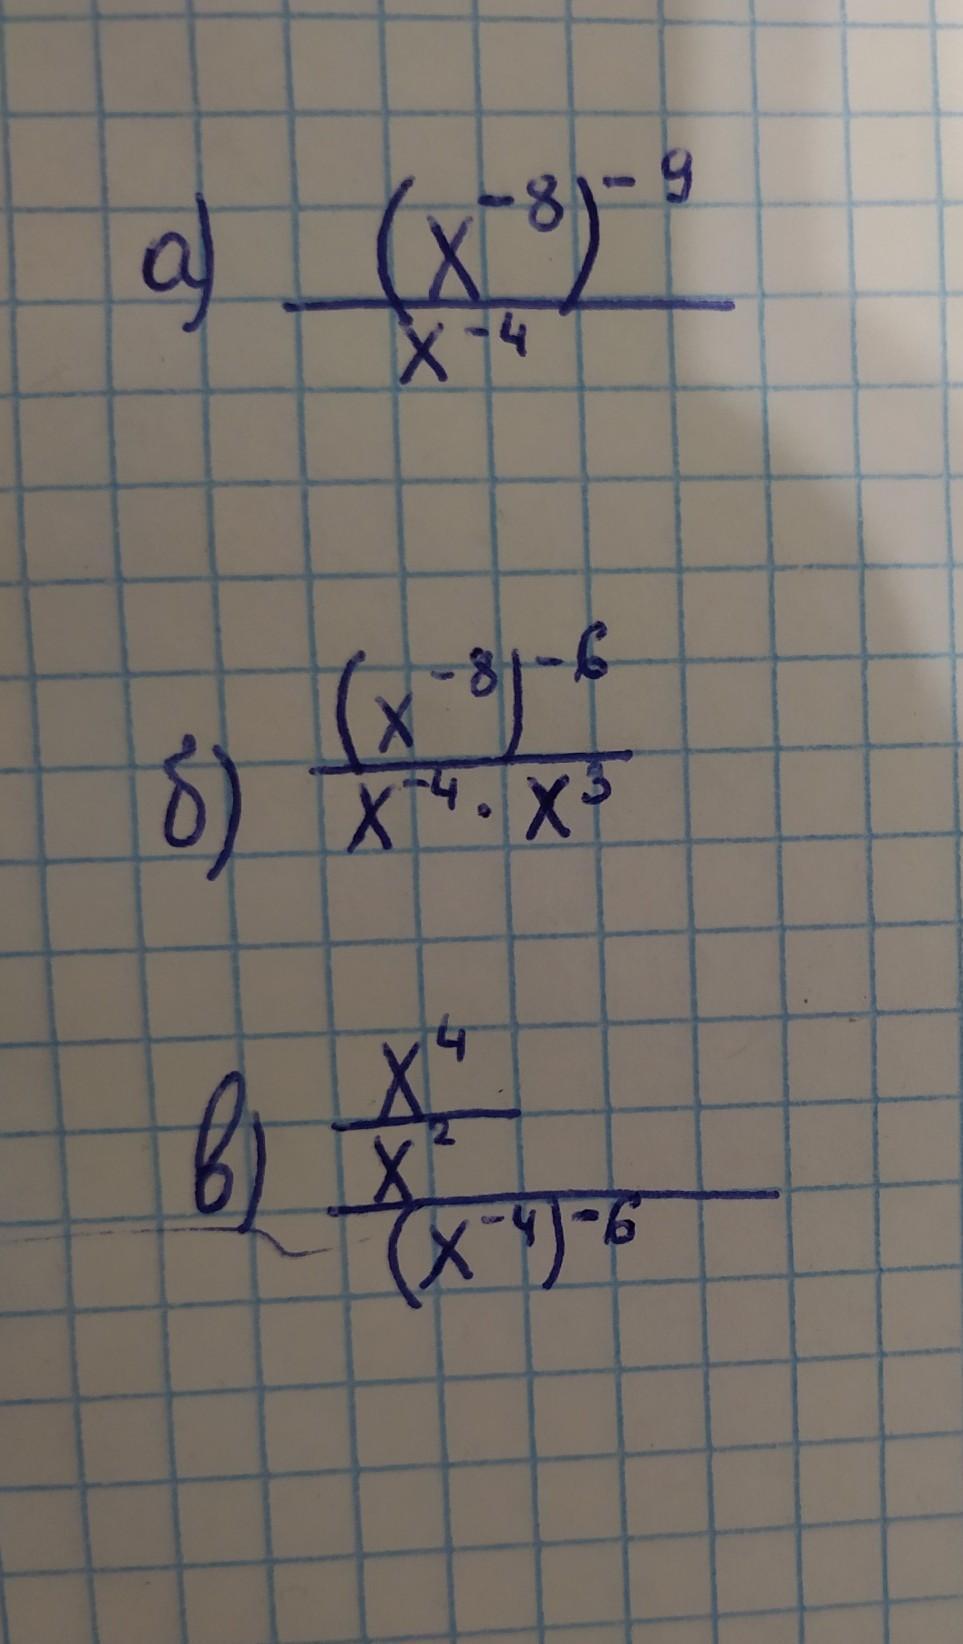 а) (x⁻⁸)⁻⁹
x⁻⁴
б) (x⁻⁸)⁻⁶
x⁻⁴ · x³
в) x⁴
x²
(x⁻⁴)⁻⁶